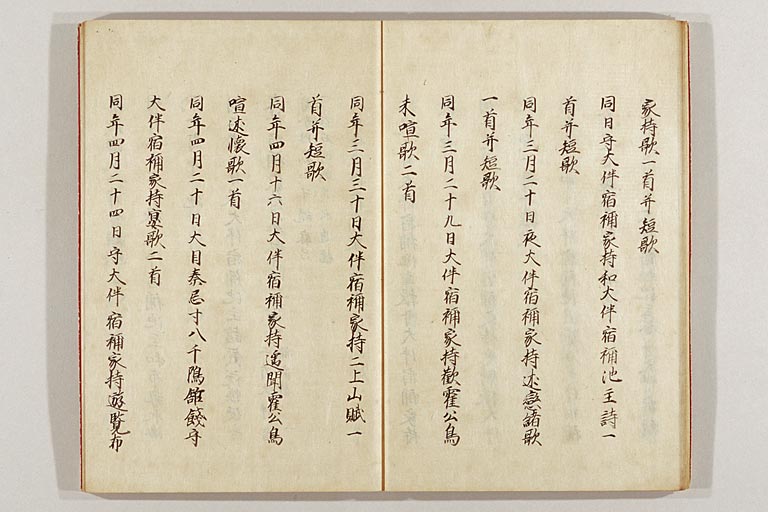 家持歌一首并短歌
同日守大伴宿祢家持和大伴宿祢池主詩一
首并短歌
同年三月二十日夜大伴宿祢家持述恋諸歌
一首并短歌
同年三月二十九日大伴宿祢家持歎霍公鳥
未喧歌二首
同年三月三十日大伴宿祢家持二上山賦一
首并短歌
同年四月十六日大伴宿祢家持遥聞霍公鳥
喧述懐歌一首
同年四月二十日大目秦忌寸八千隝舘餞守
大伴宿祢家持宴歌二首
同年四月二十四日守大伴宿祢家持遊覧布